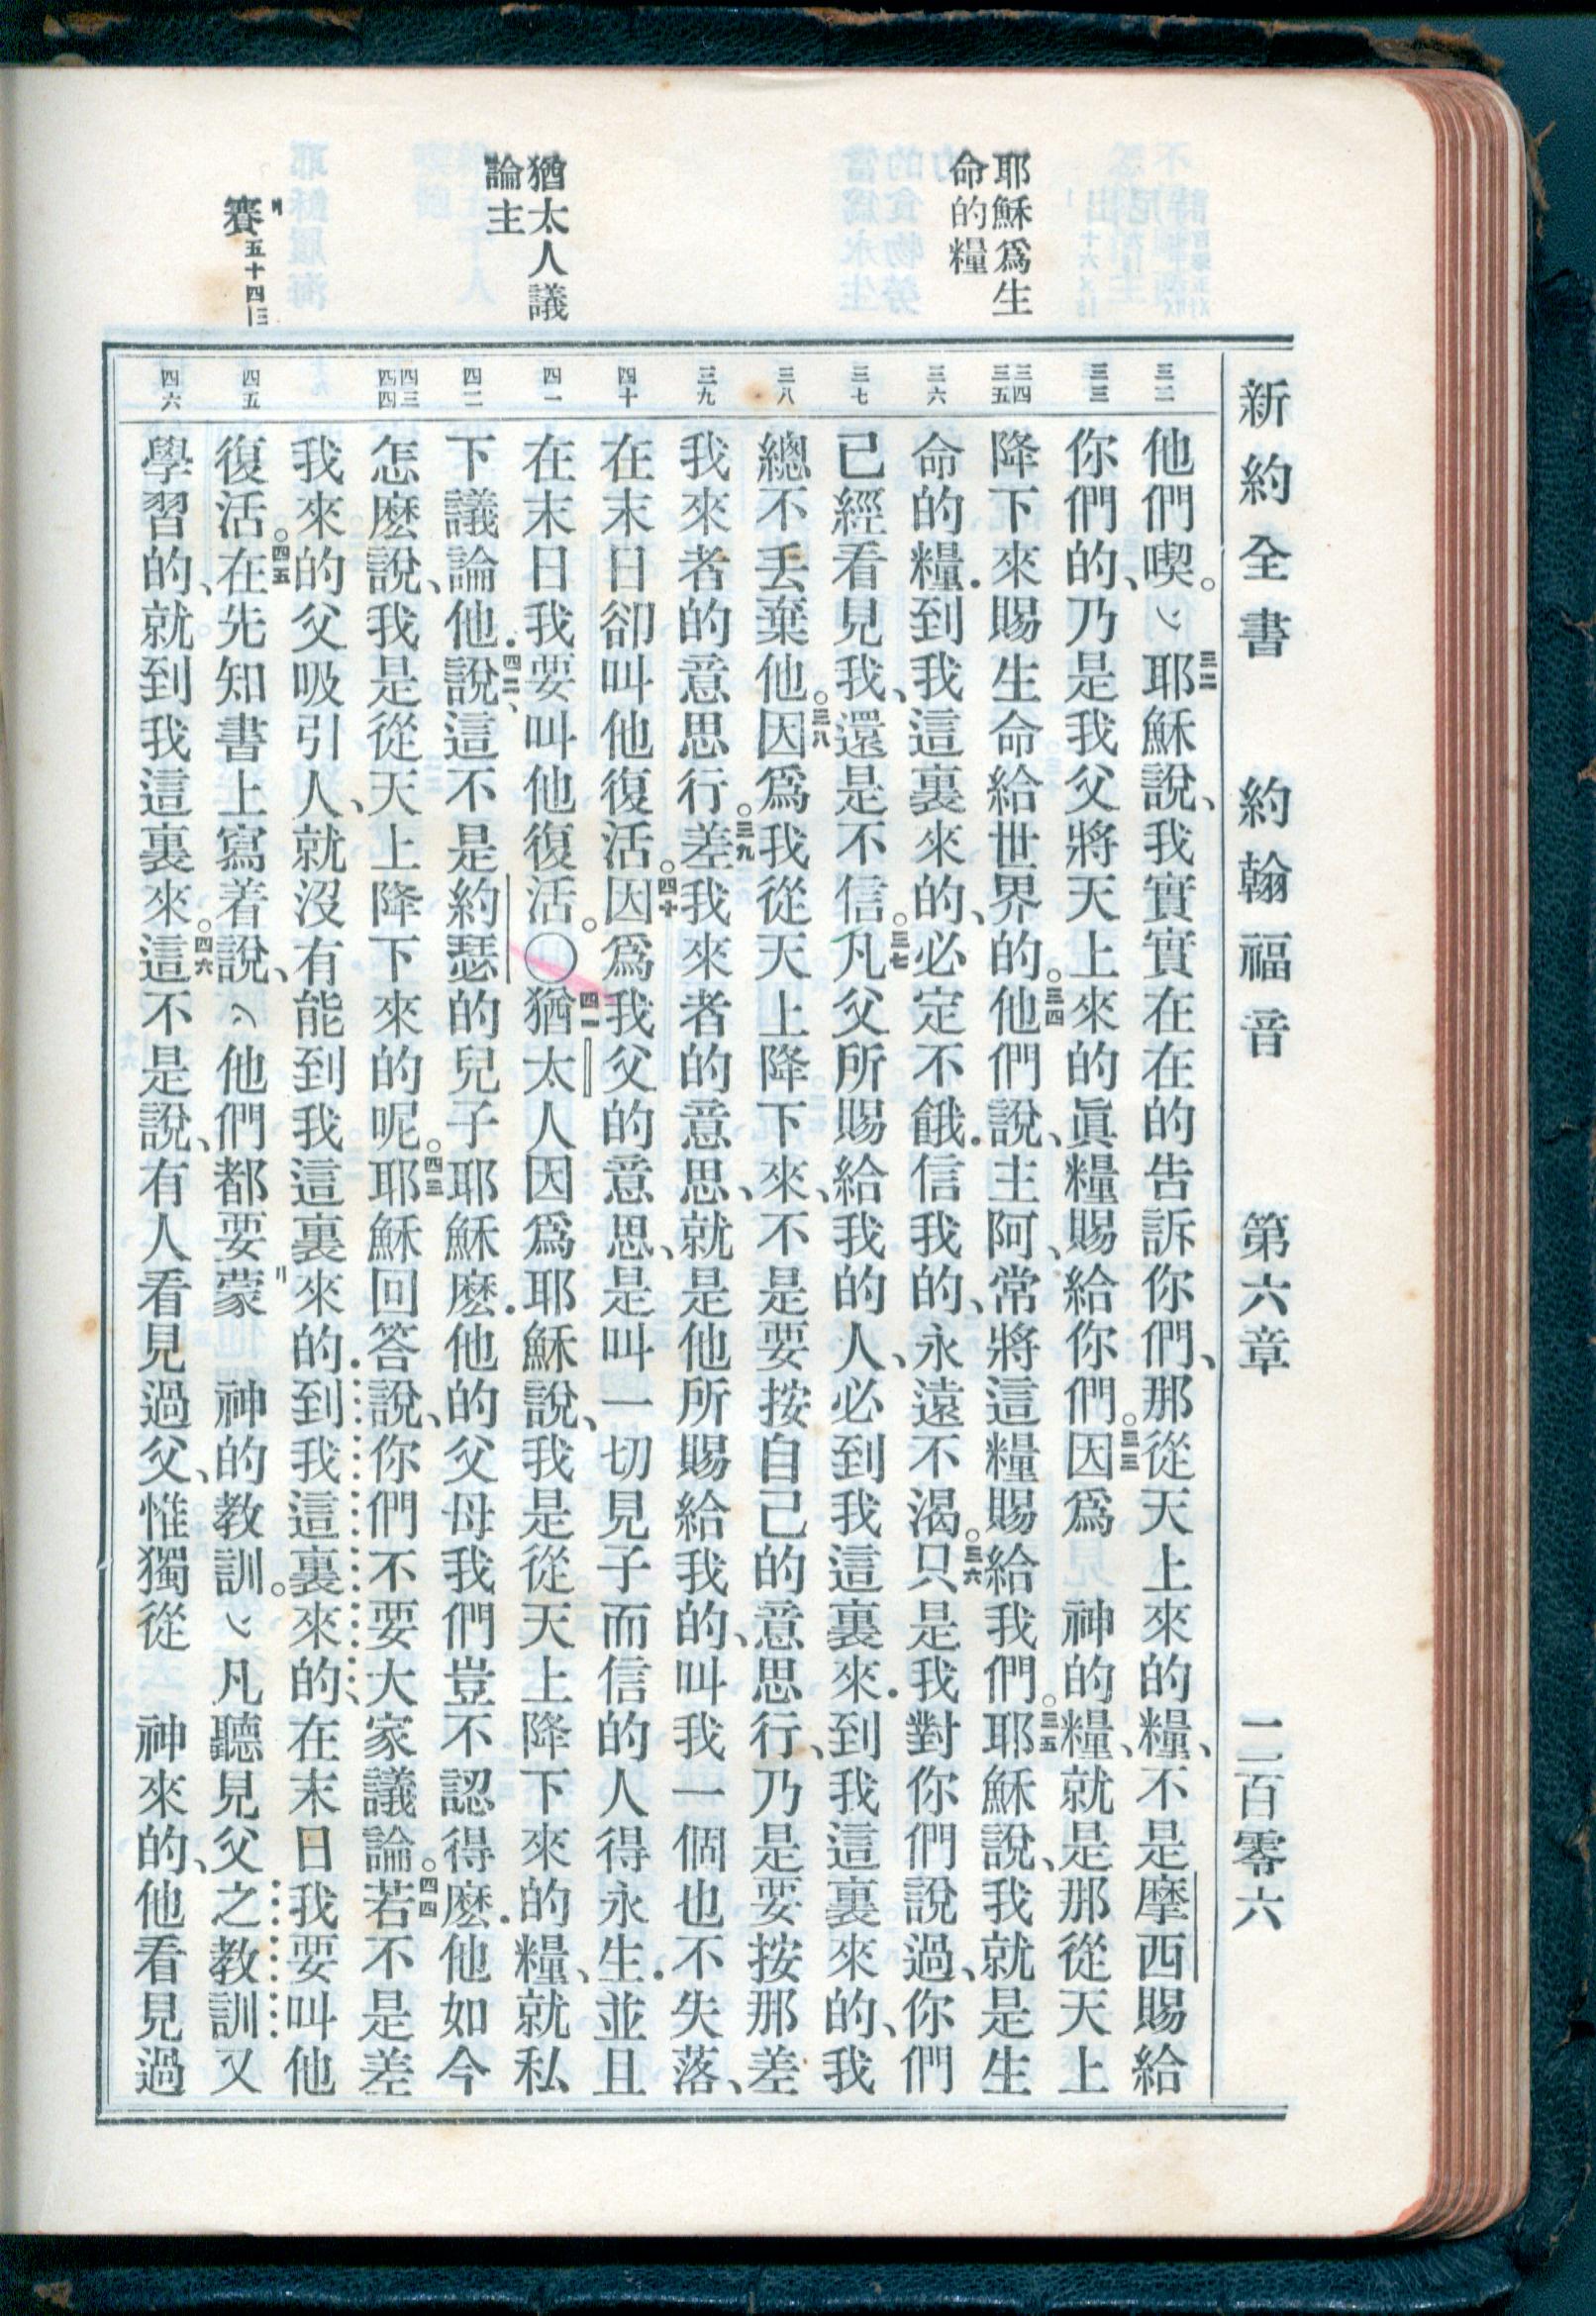 新約全書 約翰福音 第六章 二百零六
耶穌爲生
命的糧
猶太人議
論主
賽五十四13
三二
三三
三四
三五
三六
三七
三八
三九
四十
四一
四二
四三
四四
四五
四六
他們喫。﹀三二耶穌說、我實實在在的告訴你們、那從天上來的糧、不是摩西賜給
你們的、乃是我父將天上來的眞糧賜給你們。三三因爲 神的糧、就是那從天上
降下來賜生命給世界的。三四他們說、主阿、常將這糧賜給我們。三五耶穌說、我就是生
命的糧．到我這裏來的、必定不餓．信我的、永遠不渴。三六只是我對你們說過、你們
已經看見我、還是不信。三七凡父所賜給我的人、必到我這裏來．到我這裏來的、我
總不丢棄他。三八因爲我從天上降下來、不是要按自己的意思行、乃是要按那差
我來者的意思行。三九差我來者的意思、就是他所賜給我的、叫我一個也不失落、
在末日卻叫他復活。四十因爲我父的意思、是叫一切見子而信的人得永生．並且
在末日我要叫他復活。〇四一猶太人因爲耶穌說、我是從天上降下來的糧、就私
下議論他．四二說、這不是約瑟的兒子耶穌麽．他的父母我們豈不認得麽．他如今
怎麽說、我是從天上降下來的呢。四三耶穌回答說、你們不要大家議論。四四若不是差
我來的父吸引人、就沒有能到我這裏來的．到我這裏來的、在末日我要叫他
復活。四五在先知書上寫着說、︿他們都要蒙 神的教訓。﹀凡聽見父之教訓又
學習的、就到我這裏來。四六這不是說、有人看見過父、惟獨從 神來的、他看見過